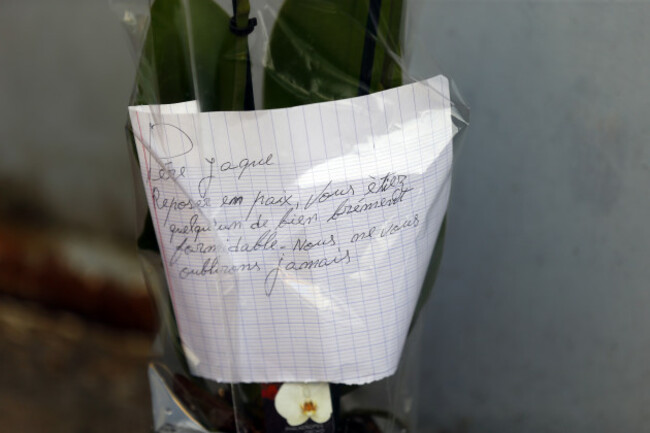 Père Jaque
Reposée en paix, Vous étiez
quelqu'un de bien brément
formidable. Nous ne vous
oublirons jamais